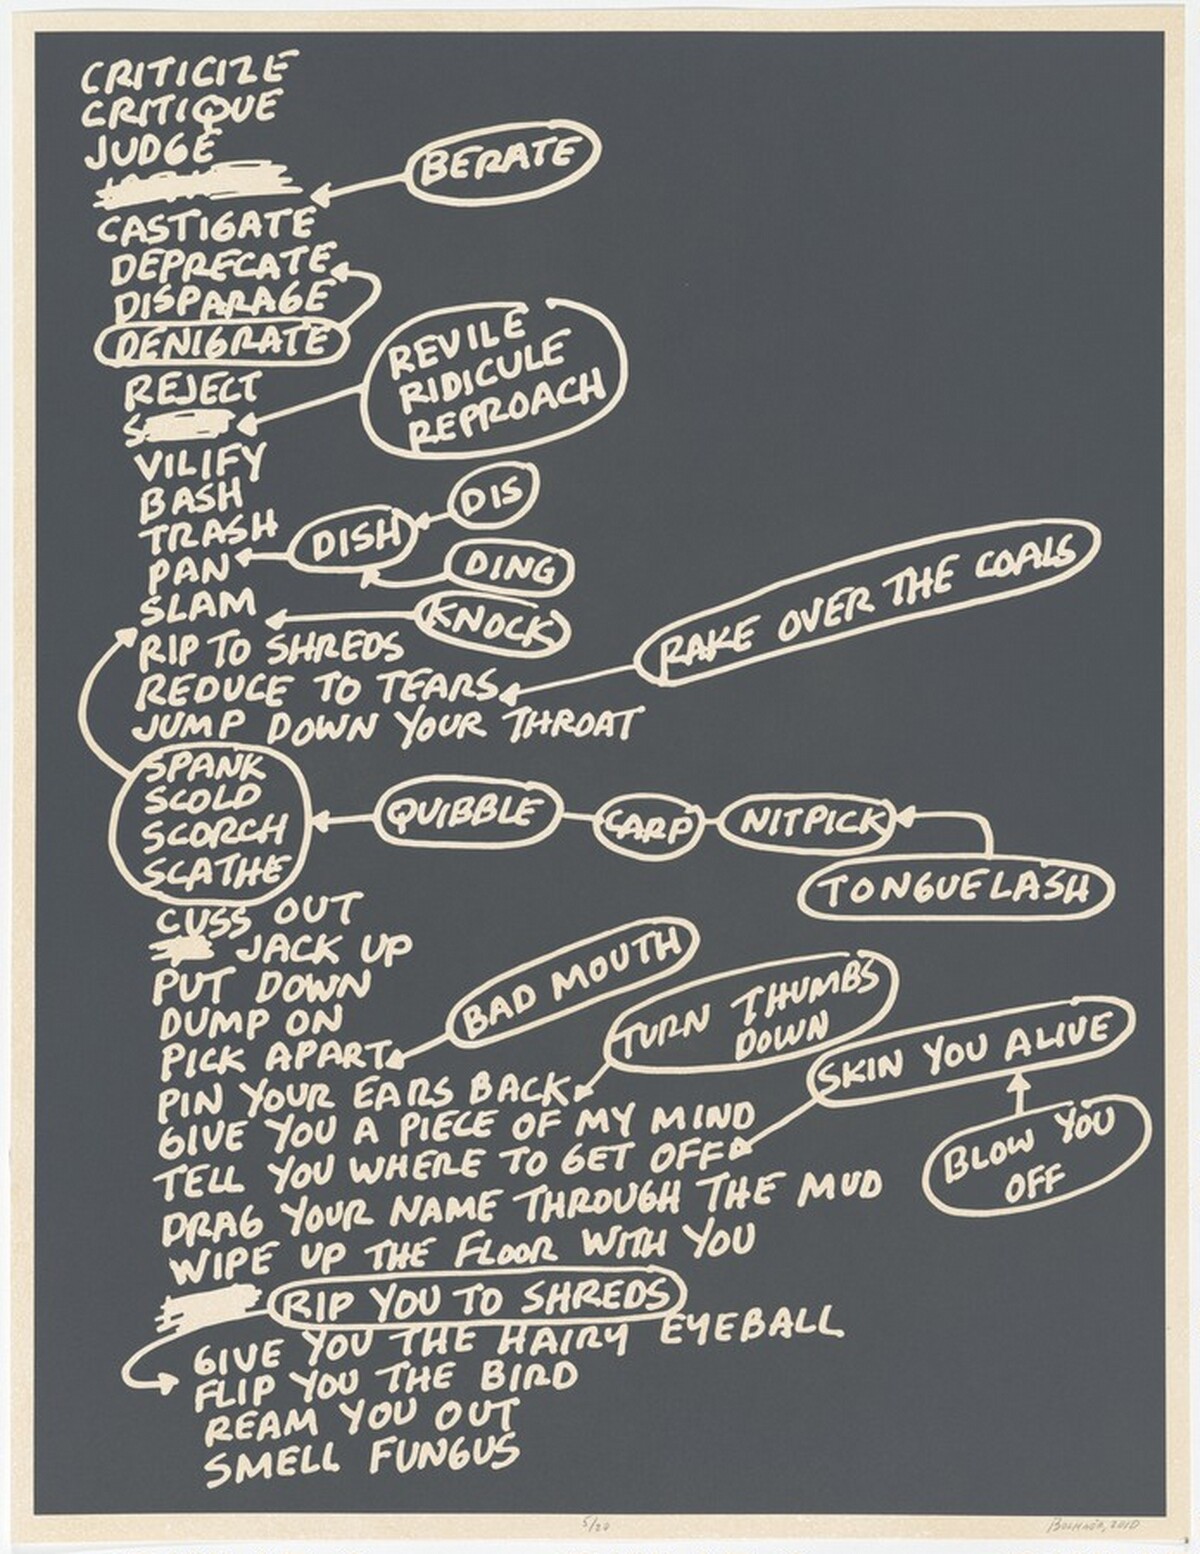 CRITICIZE
CRITIQUE
JUDGE
BERATE
CASTIGATE
DEPRECATE
DISPARAGE
DENIGRATE
REVILE
RIDICULE
REPROACH
REJECT
S
VILIFY
BASH
DIS
TRASH
DISH
PAN
DING
SLAM
KNOCK
RAKE OVER THE COALS
RIP TO SHREDS
REDUCE TO TEARS
JUMP DOWN YOUR THROAT
SPANK
SCOLD
SCORCH
SCATHE
QUIBBLE
CARP
NITPICK
TONGUE LASH
CUSS OUT
JACK UP
PUT DOWN
DUMP ON
BAD MOUTH
PICK APART
TURN THUMBS
DOWN
PIN YOUR EARS BACK
SKIN YOU ALIVE
GIVE YOU A PIECE OF MY MIND
BLOW YOU
OFF
TELL YOU WHERE TO GET OFF
DRAG YOUR NAME THROUGH THE MUD
WIPE UP THE FLOOR WITH YOU
RIP YOU TO SHREDS
GIVE YOU THE HAIRY EYEBALL
FLIP YOU THE BIRD
REAM YOU OUT
SMELL FUNGUS
5/20
2010